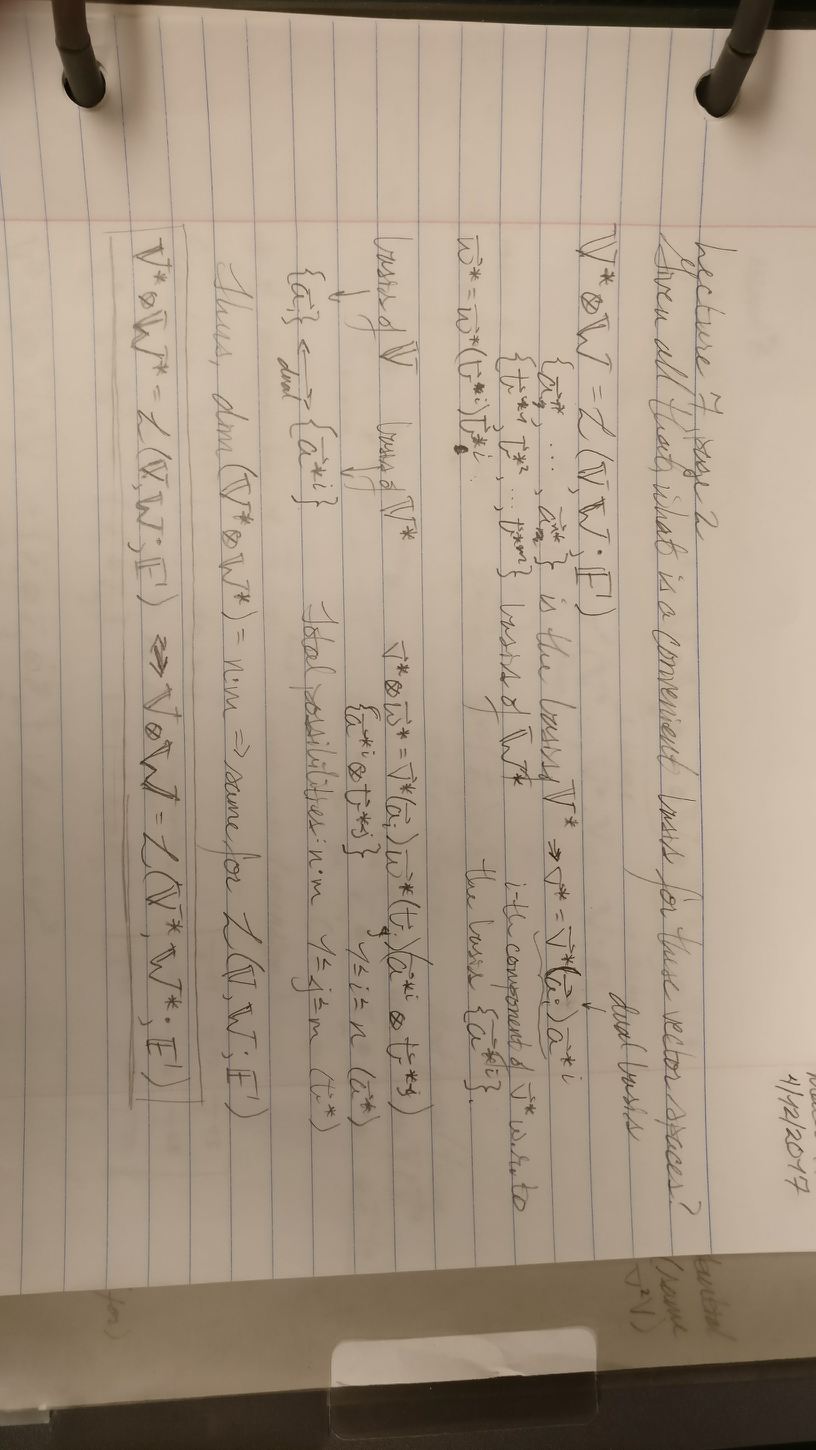 4/12/2017
Lecture 7, page 2
Given all that, what is a convenient basis for these vector spaces?
dual basis
𝕍* ⊗ 𝕎 = L(𝕍, 𝕎; 𝔼¹)
{a⃗₁*, ..., a⃗ₙ*} is the basis of 𝕍* ⇒ v⃗* = v⃗*(a⃗ᵢ) a⃗*ⁱ
{b⃗*¹, b⃗*², ..., b⃗*ᵐ} basis of 𝕎* i-th component of v⃗* w.r. to
w⃗* = w⃗*(b⃗*ⁱ) b⃗*ⁱ the basis {a⃗*ⁱ}.
basis of 𝕍 basis of 𝕍* v⃗* ⊗ w⃗* = v⃗*(a⃗ᵢ) w⃗*(b⃗ⱼ)(a⃗*ⁱ ⊗ b⃗*ʲ)
{a⃗*ⁱ ⊗ b⃗*ʲ} 1 ≤ i ≤ n (a⃗*)
{a⃗ᵢ} ⟷ {a⃗*ⁱ} Total possibilities: n·m 1 ≤ j ≤ m (b⃗*)
dual
Thus, dim(𝕍* ⊗ 𝕎*) = n·m ⇒ same for L(𝕍, 𝕎; 𝔼¹)
𝕍* ⊗ 𝕎* = L(𝕍, 𝕎; 𝔼¹) ⇔ 𝕍 ⊗ 𝕎 = L(𝕍*, 𝕎*; 𝔼¹)
(same